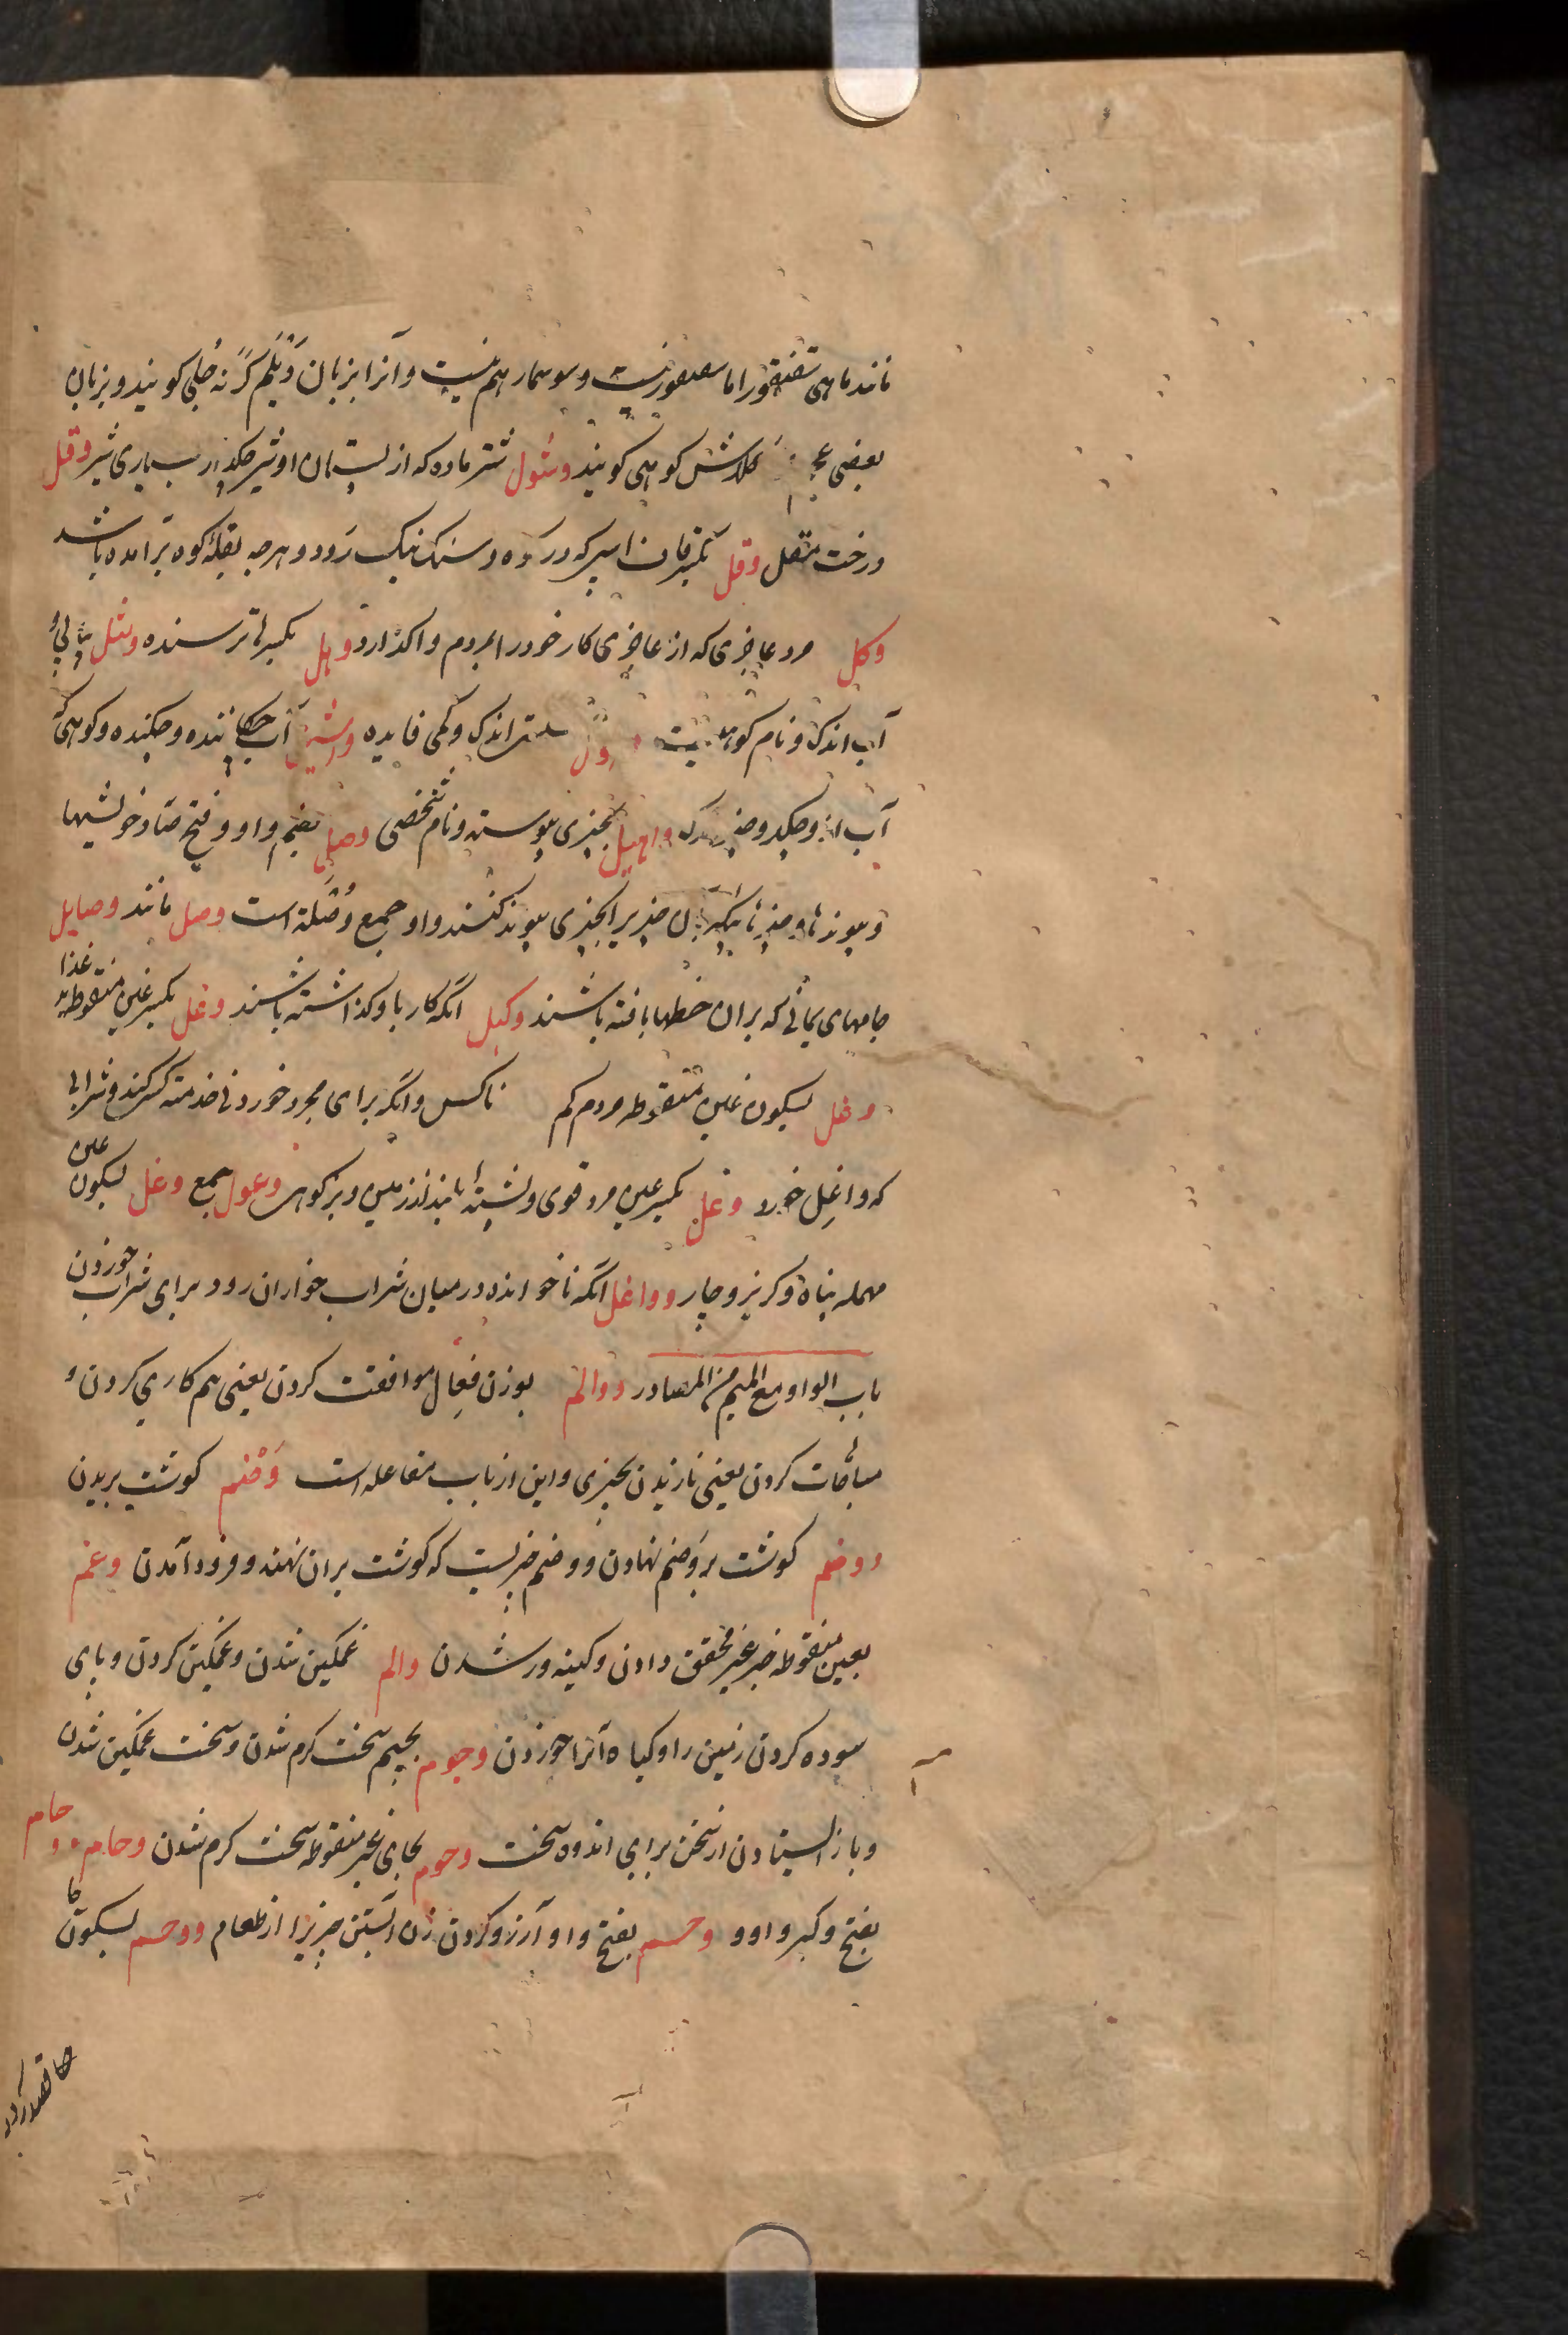 مانند ماهی سقنقور اما سقنقور نیست و سوسمار هم نیست و آنرا بزبان دَیْلَم کَرْنه خُلی کویند و بزبان
بعضی عجم کلاش کوهی کویند وشول شتر ماده که از پستان او شیر چکد از بسیاری شیر وقل
درخت مقل وقل بکسر قاف اسپی که در کوه و سنک نیک رَود و هرچه بقلهٔ کوه برامده باشد
وکل مرد عاجزی که از عاجزی کار خود را بمردم واکذارد وهل بکسر ها ترسنده وشل
آب اندک و نام کوهیست اندک و کمی فایده وشیل آب چکاننده و چکنده و کوهی که
آب ازو چکد و واصیل بچیزی پیوسته و نام شخصی وصل بضم واو و فتح صاد خویشیها
و پیوندها و چیزها یی که بآن چیزیرا بچیزی پیوند کنند و او جمع وُصْلة است وصل مانند وصایل
جامهای یمانی که بران خطها بافته باشند وکیل انکه کار باو کذاشته باشند وغل بکسر غین منقوطه بد غذا
وغل بسکون غین منقوطه مردم کم ناکس و انکه برای مجرد خوردنی خدمت کسی کند و شرابی
که واغِل خورد وعل بکسر عین مرد قوی و پشته بلند از زمین و بز کوهی وعول جمع وعل بسکون عین
مهمله پناه و کریز و چاره وواغل انکه ناخوانده در میان شراب خواران رود برای شراب خوردن
باب الواو مع المیم من المصادر ووالم بوزن فِعال موافقت کردن یعنی هم کاری کردن و
مباهات کردن یعنی نازیدن بچیزی و این از باب مفاعله است وَضْم کوشت بریدن
ووضم کوشت بر وَضم نهادن و وضم چیزیست که کوشت بران نهند و فرود آمدن وغم
بغین منقوطه خبر غیر محقق دادن و کینه ور شدن والم غمکین شدن و غمکین کردن و پای
سوده کردن زمین را و کیاه آنرا خوردن وجوم بجیم سخت کرم شدن و سخت غمکین شدن
و باز ایستادن از سخن برای اندوه سخت وحوم بحای غیر منقوطه سخت کرم شدن وحام و وحام
بفتح و کسر واو و وحم بفتح واو آرزو کردن زن آبستن چیزیرا از طعام ووحم بسکون حا
حا قصد کردن